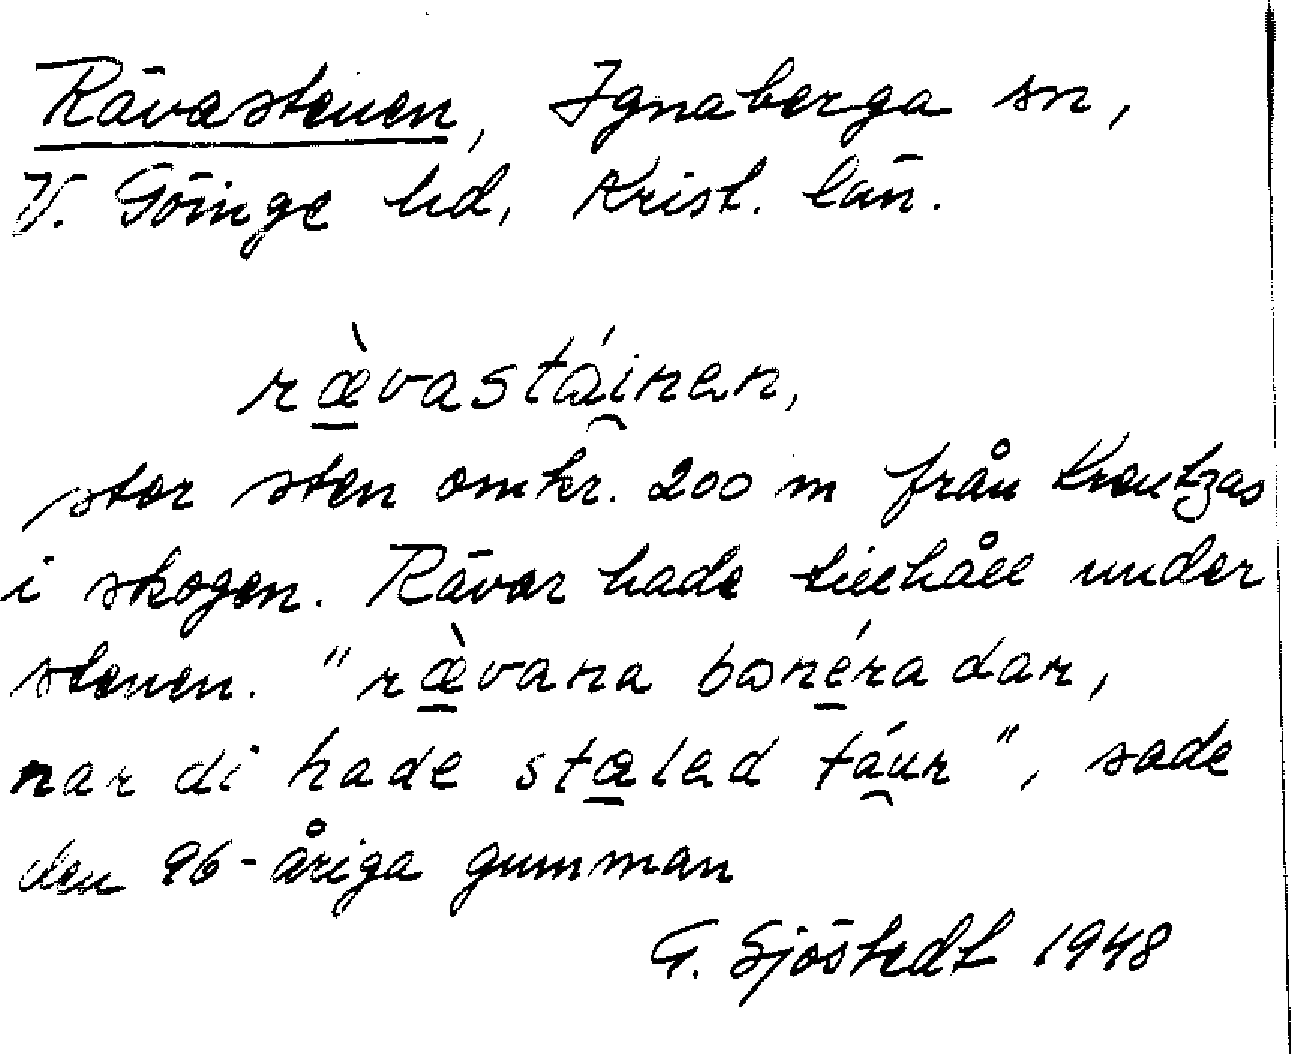 Rävastenen, Ignaberga sn,
V. Göinge hd, Krist. län.
ræ̀vastáinen,
stor sten omkr. 200 m från Kreutzas
i skogen. Rävar hade tillhåll under
stenen. "ræ̀vana bonéra dar,
nar di hade stæled táur", sade
den 96-åriga gumman
G. Sjöstedt 1948